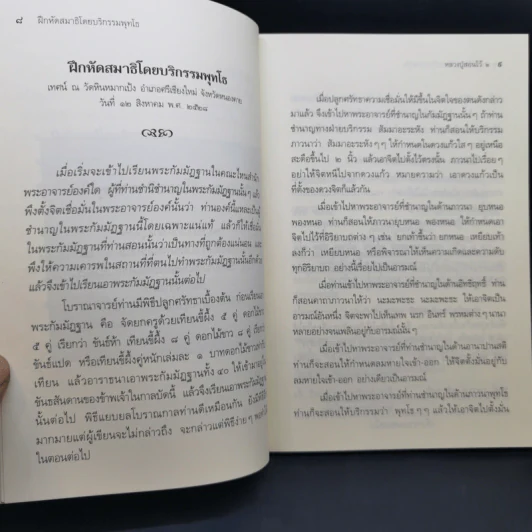 ๘ ฝึกหัดสมาธิโดยบริกรรมพุทโธ
ฝึกหัดสมาธิโดยบริกรรมพุทโธ
เทศน์ ณ วัดหินหมากเป้ง อำเภอศรีเชียงใหม่ จังหวัดหนองคาย
วันที่ ๑๒ สิงหาคม พ.ศ. ๒๕๒๘
เมื่อเริ่มจะเข้าไปเรียนพระกัมมัฏฐานในคณะไหนสำนัก
พระอาจารย์องค์ใด ผู้ที่ท่านชำนิชำนาญในพระกัมมัฏฐานนั้นๆ แล้ว
พึงตั้งจิตเชื่อมั่นในพระอาจารย์องค์นั้นว่า ท่านองค์นี้แหละเป็นผู้
ชำนาญในพระกัมมัฏฐานนี้โดยเฉพาะแน่แท้ แล้วก็ให้เชื่อมั่น
ในพระกัมมัฏฐานที่ท่านสอนนั้นว่าเป็นทางที่ถูกต้องแน่นอน และ
พึงให้ความเคารพในสถานที่ที่ตนไปทำพระกัมมัฏฐานนั้นอีกด้วย
แล้วจึงเข้าไปเรียนเอาพระกัมมัฏฐานนั้นต่อไป
โบราณาจารย์ท่านมีพิธีปลูกศรัทธาเบื้องต้น ก่อนเรียนเอา
พระกัมมัฏฐาน คือ จัดยกครูด้วยเทียนขี้ผึ้ง ๕ คู่ ดอกไม้ขาว
๕ คู่ เรียกว่า ขันธ์ห้า เทียนขี้ผึ้ง ๘ คู่ ดอกไม้ขาว ๘ คู่ เรียกว่า
ขันธ์แปด หรือเทียนขี้ผึ้งคู่หนักเล่มละ ๑ บาทดอกไม้ขาวเท่า
เทียน แล้วอาราธนาเอาพระกัมมัฏฐานทั้ง ๔๐ ให้เข้ามาอยู่ใน
ขันธสันดานของข้าพเจ้าในกาลบัดนี้ แล้วจึงเรียนเอาพระกัมมัฏฐาน
นั้นต่อไป พิธีแยบยลโบราณกาลท่านดีเหมือนกัน ยังมีพิธี
มากมายแต่ผู้เขียนจะไม่กล่าวถึง จะกล่าวแต่พิธีง่ายๆ
ในตอนต่อไป
หลวงปู่สอนไว้ ๑ ๙
เมื่อปลูกศรัทธาความเชื่อมั่นให้มีขึ้นในจิตใจของตนดังกล่าว
มาแล้ว จึงเข้าไปหาพระอาจารย์ที่ชำนาญในกัมมัฏฐานนั้นๆ ถ้าท่าน
ชำนาญทางฝ่ายบริกรรม สัมมาอะระหัง ท่านก็สอนให้บริกรรม
ภาวนาว่า สัมมาอะระหังๆๆ ให้กำหนดในดวงแก้วใสๆ อยู่เหนือ
สะดือขึ้นไป ๒ นิ้ว แล้วเอาจิตไปตั้งไว้ตรงนั้น ภาวนาไปเรื่อยๆ
อย่าให้จิตหนีไปจากดวงแก้ว หมายความว่า เอาดวงแก้วเป็น
ที่ตั้งของดวงจิตก็แล้วกัน
เมื่อเข้าไปหาพระอาจารย์ที่ชำนาญในด้านภาวนา ยุบหนอ
พองหนอ ท่านก็สอนให้ภาวนายุบหนอ พองหนอ ให้กำหนดเอา
จิตไปไว้ที่อิริยาบถต่างๆ เช่น ยกเท้าขึ้นว่า ยกหนอ เหยียบเท้า
ลงก็ว่า เหยียบหนอ หรือพิจารณาให้เห็นความเกิดและความดับ
ทุกอิริยาบถ อย่างนี้เรื่อยไปเป็นอารมณ์
เมื่อท่านเข้าไปหาพระอาจารย์ที่ชำนาญในด้านอิทธิฤทธิ์ ท่าน
ก็สอนคาถาภาวนาว่า นะมะพะธะ นะมะพะธะ ให้เอาจิตเป็น
อารมณ์อันหนึ่ง จิตจะพาไปเห็นเทพ นรก อินทร์ พรหมต่างๆ นานา
หลายอย่างจนเพลินอยู่กับอารมณ์นั้นๆ
เมื่อเข้าไปหาพระอาจารย์ที่ท่านชำนาญในด้านอานาปานสติ
ท่านก็จะสอนให้กำหนดลมหายใจเข้า-ออก ให้จิตตั้งมั่นอยู่กับ
ลมหายใจเข้า-ออก อย่างเดียวเป็นอารมณ์
เมื่อเข้าไปหาพระอาจารย์ที่ท่านชำนาญในด้านภาวนาพุทโธ
ท่านก็จะสอนให้บริกรรมว่า พุทโธ ๆ ๆ แล้วให้เอาจิตไปตั้งมั่น